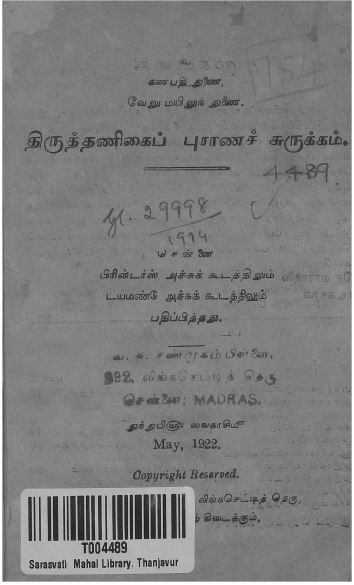 உ
கணபதி துணை.
வேலு மயிலுந் துணை.
திருத்தணிகைப் புராணச் சுருக்கம்.
4439
29998
1914
சென்னை
பிரின்டர்ஸ் அச்சுக் கூடத்திலும்
டயமண்டு அச்சுக் கூடத்திலும்
பதிப்பித்தது.
சண்முகம்பிள்ளை,
392, லிங்கசெட்டித் தெரு
சென்னை: MADRAS.
வைகாசிமீ
May, 1922.
Copyright Reserved.
லிங்கசெட்டித் தெரு,
கிடைக்கும்.
T004489
Sarasvati Mahal Library, Thanjavur